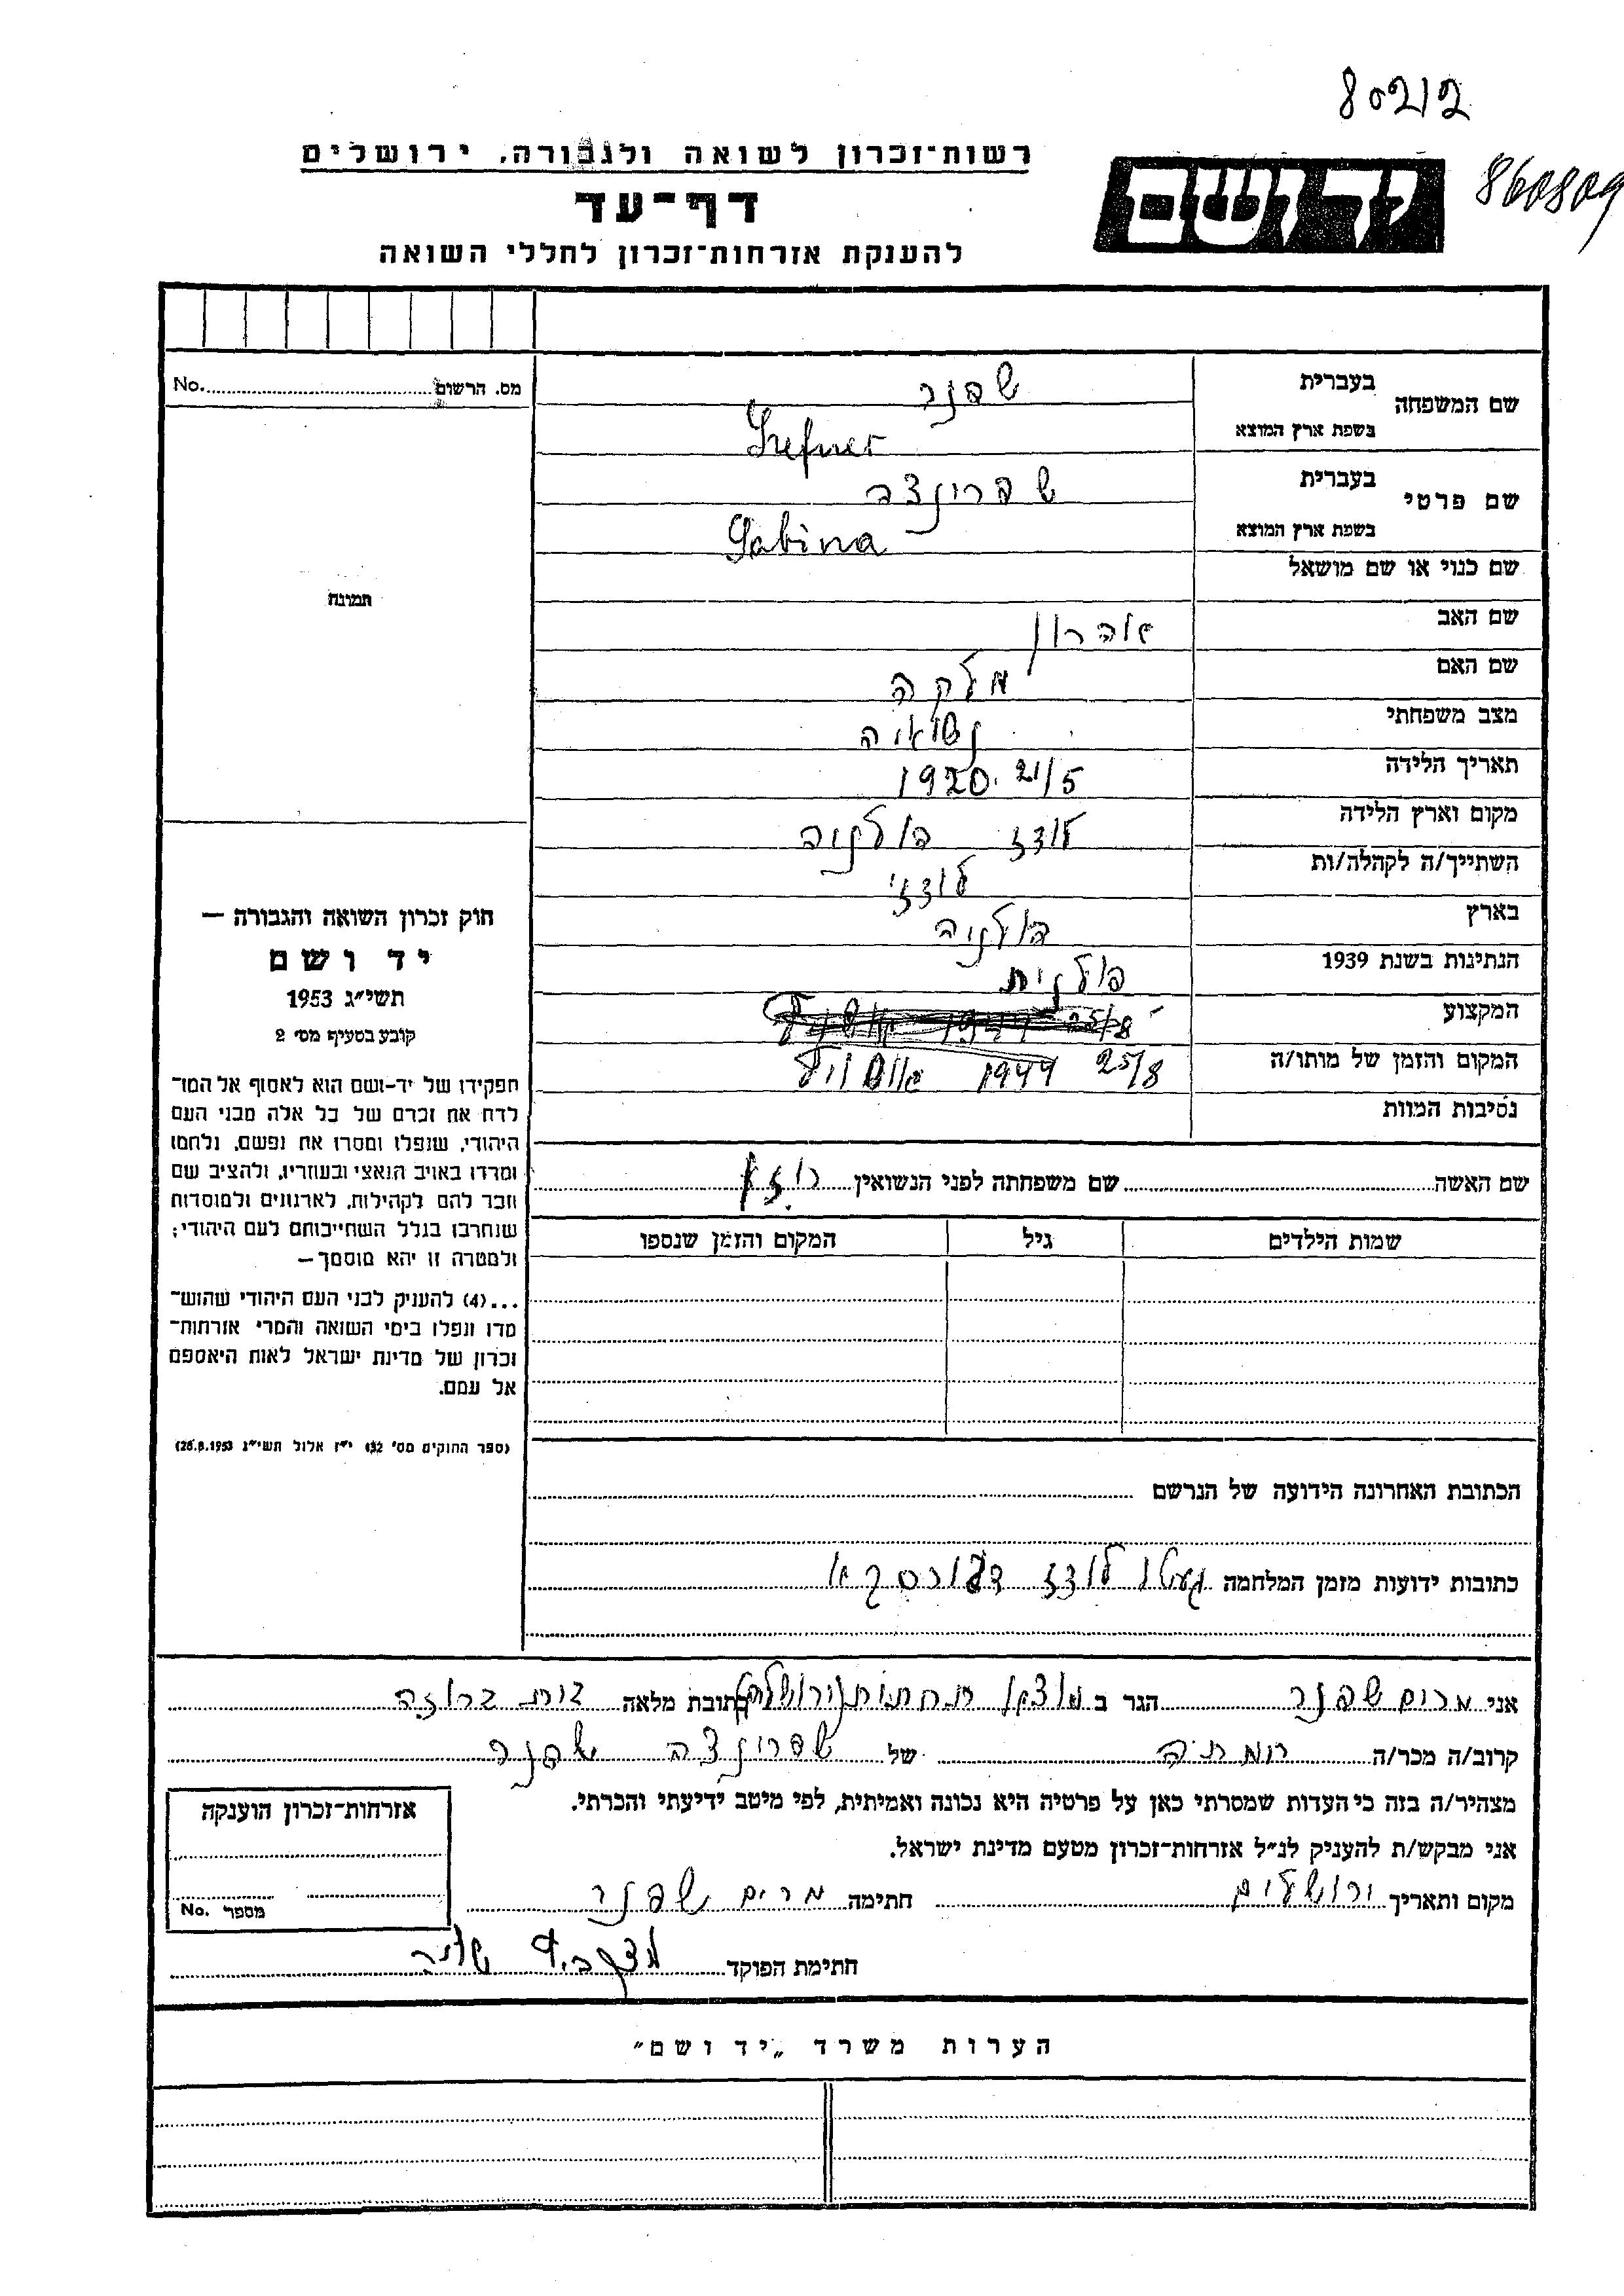 80212
860809
יד ושם
רשות־זכרון לשואה ולגבורה, ירושלים
דף־עד
להענקת אזרחות־זכרון לחללי השואה
מס. הרשום No.
תמונה
חוק זכרון השואה והגבורה —
יד ושם
תשי״ג 1953
קובע בסעיף מס׳ 2
תפקידו של יד-ושם הוא לאסוף אל המו־
לדת את זכרם של כל אלה מבני העם
היהודי, שנפלו ומסרו את נפשם, נלחמו
ומרדו באויב הנאצי ובעוזריו, ולהציב שם
וזכר להם לקהילות, לארגונים ולמוסדות
שנחרבו בגלל השתייכותם לעם היהודי;
ולמטרה זו יהא מוסמך —
...(4) להעניק לבני העם היהודי שהוש־
מדו ונפלו בימי השואה והמרי אזרחות־
זכרון של מדינת ישראל לאות היאספם
אל עמם.
(ספר החוקים מס׳ 132 י״ז אלול תשי״ג 28.8.1953)
שם המשפחה בעברית שפנר
בשפת ארץ המוצא Szefner
שם פרטי בעברית שפרינצה
בשפת ארץ המוצא Sabina
שם כנוי או שם מושאל
שם האב אהרון
שם האם מלקה
מצב משפחתי נשואיה
תאריך הלידה 21/5 1920
מקום וארץ הלידה לודז פולניה
השתייך/ה לקהלה/ות לודז׳
בארץ פולניה
הנתינות בשנת 1939 פולנית
המקצוע
המקום והזמן של מותו/ה 25/8 1944
נסיבות המוות
שם האשה שם משפחתה לפני הנשואין
שמות הילדים גיל המקום והזמן שנספו
הכתובת האחרונה הידועה של הנרשם
כתובות ידועות מזמן המלחמה געטו לודז
אני מרים שפנר הגר ב מוצא תחתית (ירושלים) כתובת מלאה
קרוב/ה מכר/ה של שפרינצה שפנר
מצהיר/ה בזה כי העדות שמסרתי כאן על פרטיה היא נכונה ואמיתית, לפי מיטב ידיעתי והכרתי.
אני מבקש/ת להעניק לנ״ל אזרחות־זכרון מטעם מדינת ישראל.
מקום ותאריך ירושלים חתימה מרים שפנר
חתימת הפוקד
אזרחות־זכרון הוענקה
מספר No.
הערות משרד „יד ושם״